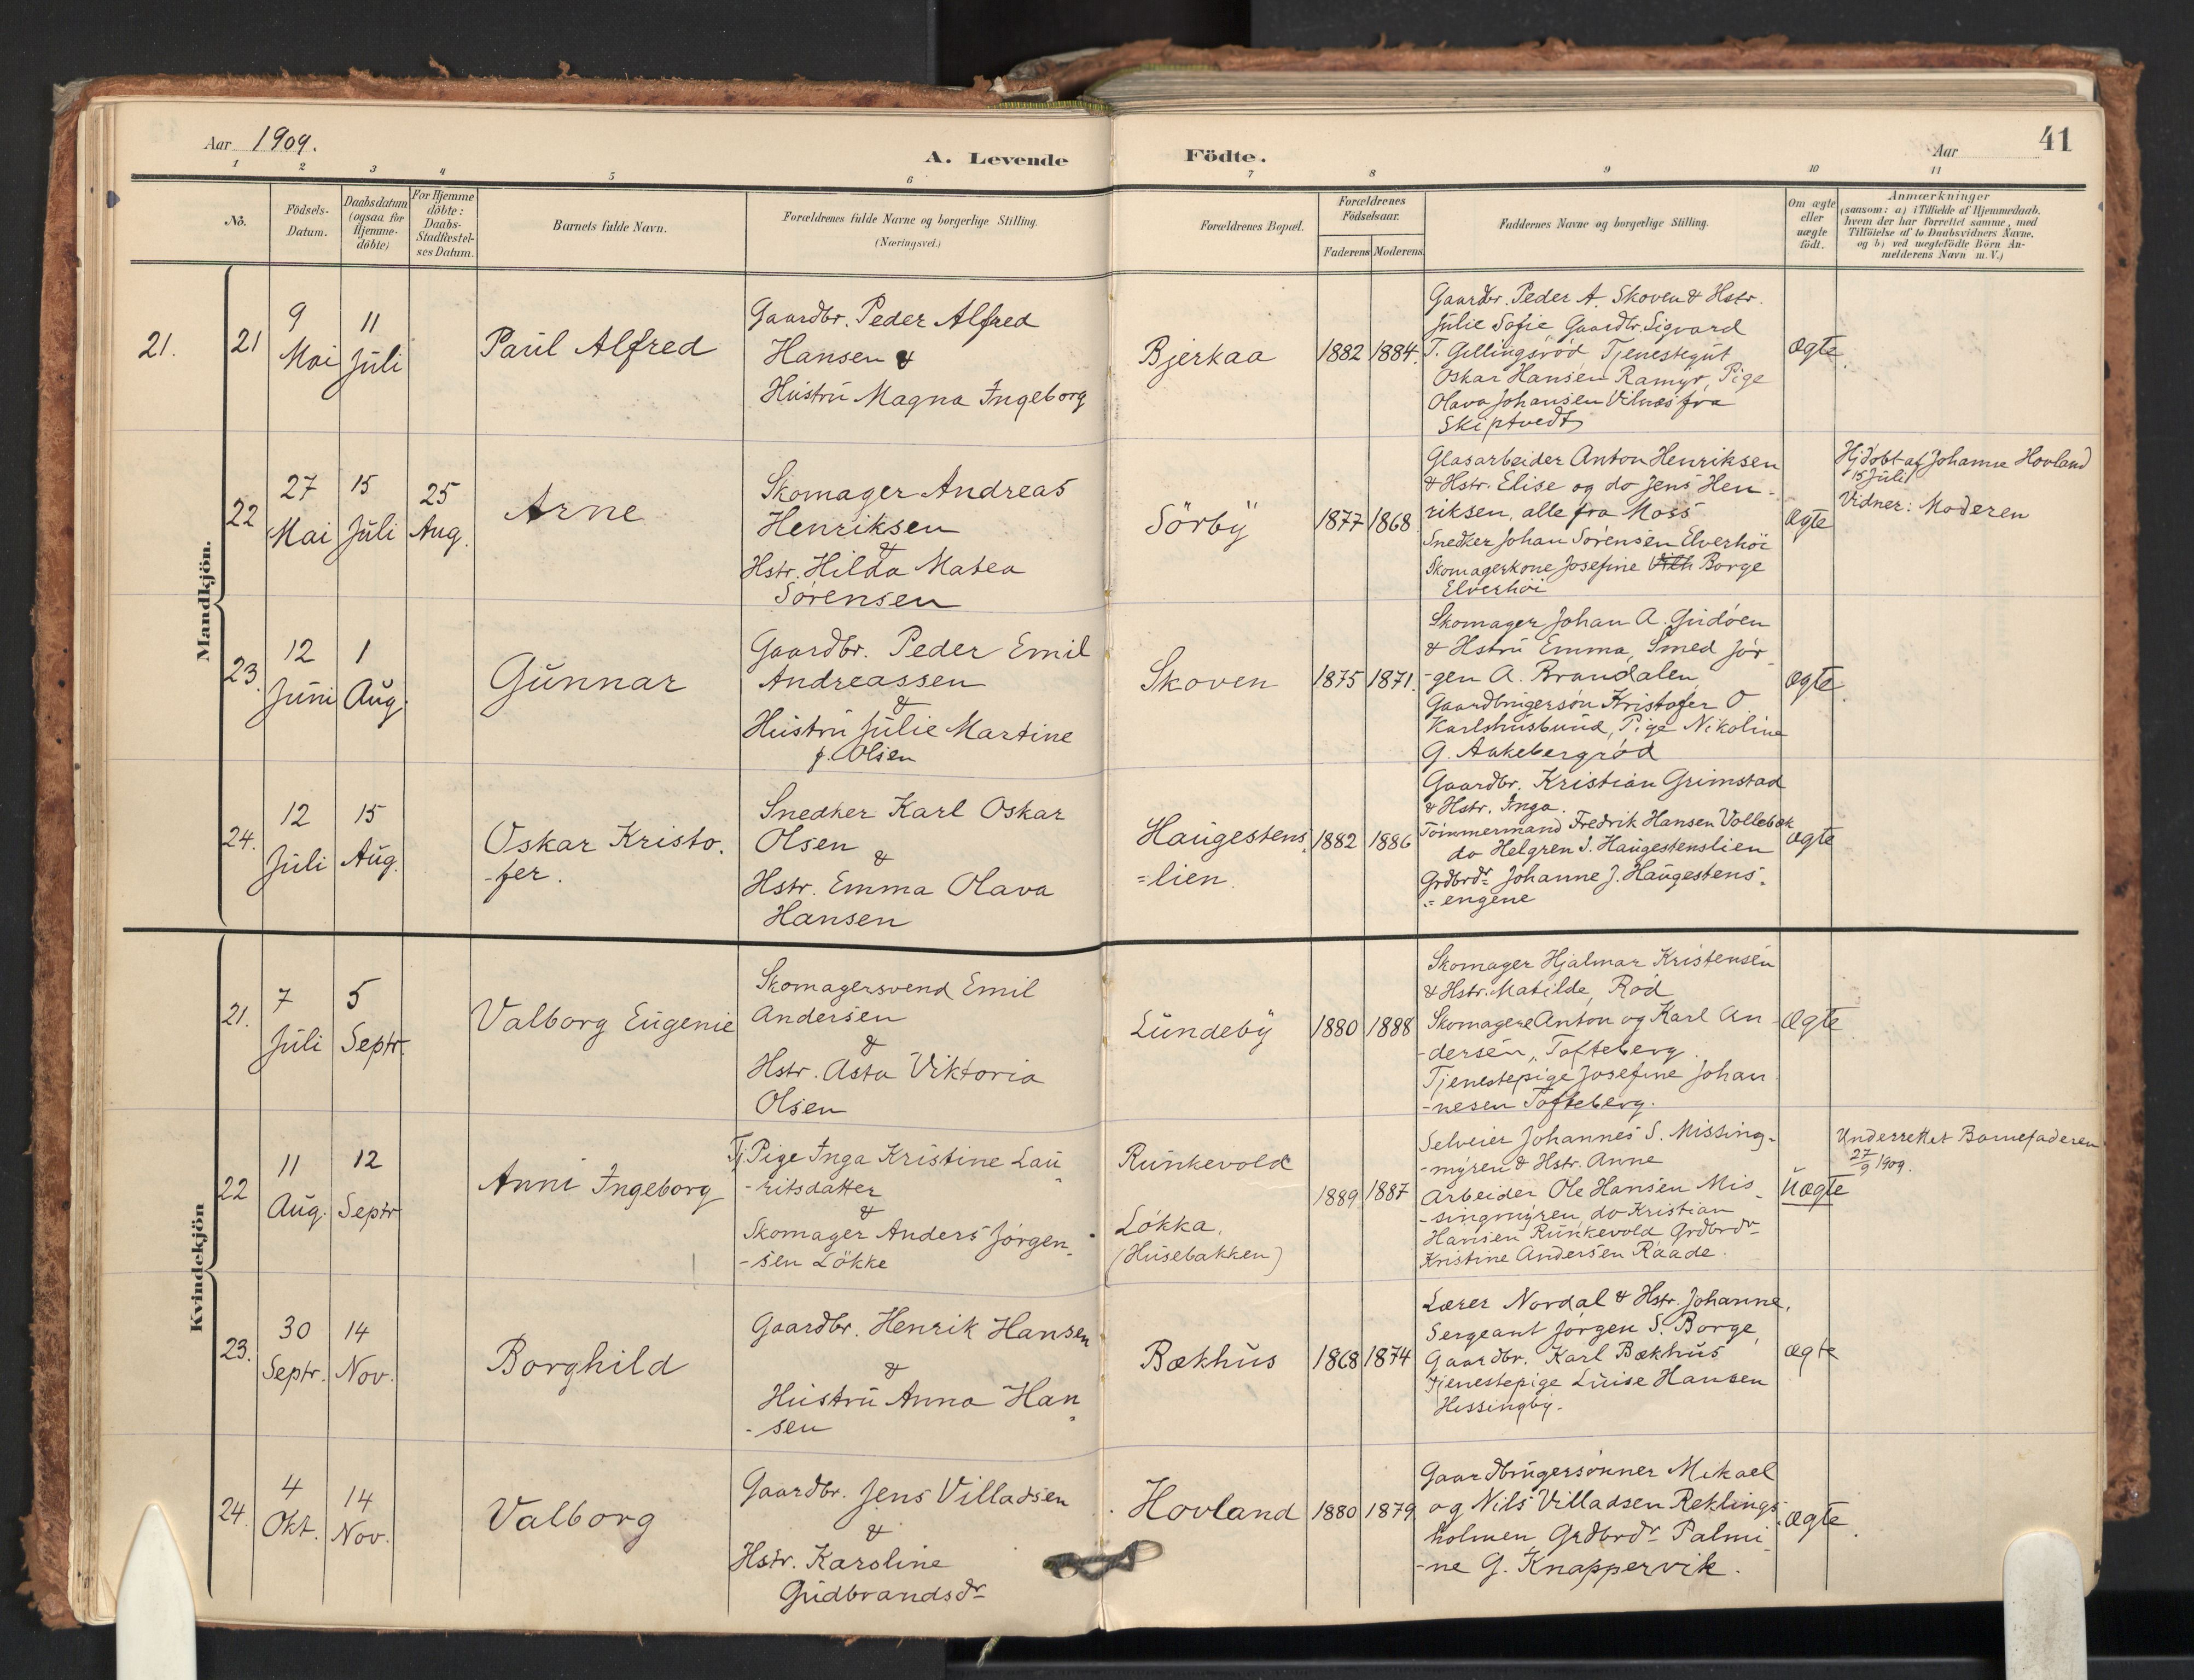 Aar 1909.
A. Levende Födte.
Aar
41
1 2 3 4 5 6 7 8 9 10 11
No.
Födsels-
Datum.
Daabsdatum
(ogsaa for
Hjemme-
döbte)
For Hjemme
döbte:
Daabs-
Stadfæstel-
ses Datum.
Barnets fulde Navn.
Forældrenes fulde Navne og borgerlige Stilling.
(Næringsvei.)
Forældrenes Bopæl.
Forældrenes
Födselsaar.
Faderens Moderens
Faddernes Navne og borgerlige Stilling.
Om ægte
eller
uægte
födt.
Anmærkninger
(saasom: a) i Tilfælde af Hjemmedaab,
hvem der har forrettet samme, med
Tilföielse af to Daabsvidners Navne,
og b) ved uægtefödte Börn An-
melderens Navn m. V.)
Mandkjön.
21.
21
9
Mai
11
Juli
Paul Alfred
Gaardbr. Peder Alfred
Hansen &
Hustru Magna Ingeborg
Bjerkaa
1882
1884.
Gaardbr. Peder A. Skoven & Hstr.
Julie Sofie Gaardbr. Sigvard
T. Gillingsröd Tjenestegut
Oskar Hansen Ramyr, Pige
Olava Johansen Vilnæs fra
Skiptvedt
ægte.
22
27
Mai
15
Juli
25
Aug.
Arne
Skomager Andreas
Henriksen
&
Hstr. Hilda Matea
Sörensen
Sörby
1877
1868
Glasarbeider Anton Henriksen
& Hstr. Elise og do Jens Hen-
riksen, alle fra Moss
Snedker Johan Sörensen Elverhöi
Skomagerkone Josefine Borge
Elverhöi
Ægte
Hjdöbt af Johanne Hovland
15 Juli
Vidner: Moderen
23.
12
Juni
1
Aug.
Gunnar
Gaardbr. Peder Emil
Andreassen
&
Hustru Julie Martine
f. Olsen
Skoven
1875
1871.
Skomager Johan A. Gudöen
& Hstru Emma, Smed Jör-
-gen A. Brandalen
Gaardbrugersön Kristofer O
Karlshusbund, Pige Nikoline
G. Aakebergröd
ægte.
24.
12
Juli
15
Aug.
Oskar Kristo-
-fer.
Snedker Karl Oskar
Olsen
&
Hstr. Emma Olava
Hansen
Haugestens-
=lien.
1882
1886
Gaardbr. Kristian Grimstad
& Hstr. Inga.
Tömmermand Fredrik Hansen Vollebæk
do Helgren J. Haugestenslien
Grdbrdr Johanne J. Haugestens-
=engene
ægte
Kvindekjön
21.
7
Juli
5
Septr.
Valborg Eugenie
Skomagersvend Emil
Andersen
&
Hstr. Asta Viktoria
Olsen
Lundeby
1880
1888
Skomager Hjalmar Kristensen
& Hstr. Matilde, Röd
Skomagere Anton og Karl An-
-dersen, Tofteberg
Tjenestepige Josefine Johan
-nesen Tofteberg.
Ægte
22
11
Aug.
12
Septr
Anni Ingeborg
Tj. Pige Inga Kristine Lau
-ritsdatter
&
Skomager Anders Jörgen-
-sen Lökke
Runkevold
Lökka.
(Husebakken)
1889
1887
Selveier Johannes S. Missing-
-myren & Hstr. Anne
Arbeider Ole Hansen Mis-
-singmyren, do Kristian
Hansen Runkevold Grdbrdr
Kristine Andersen Raade.
Uægte
Underrettet Barnefaderen
27/9 1909.
23.
30
Septr.
14
Nov.
Borghild
Gaardbr. Henrik Hansen
&
Hustru Anna Han
-sen
Bækhus
1868
1874
Lærer Nordal & Hstr. Johanne,
Sergeant Jörgen S. Borge,
Gaardbr. Karl Bækhus
Tjenestepige Luise Hansen
Hissingby.
ægte
24.
4
Okt.
14
Nov.
Valborg
Gaardbr. Jens Villadsen
&
Hstr. Karoline
Gudbrandsdr
Hovland
1880
1879
Gaardbrugersönner Mikael
og Nils Villadsen Reklings-
holmen, Grdbrdr Palmi-
-ne G. Knappervik.
Ægte.